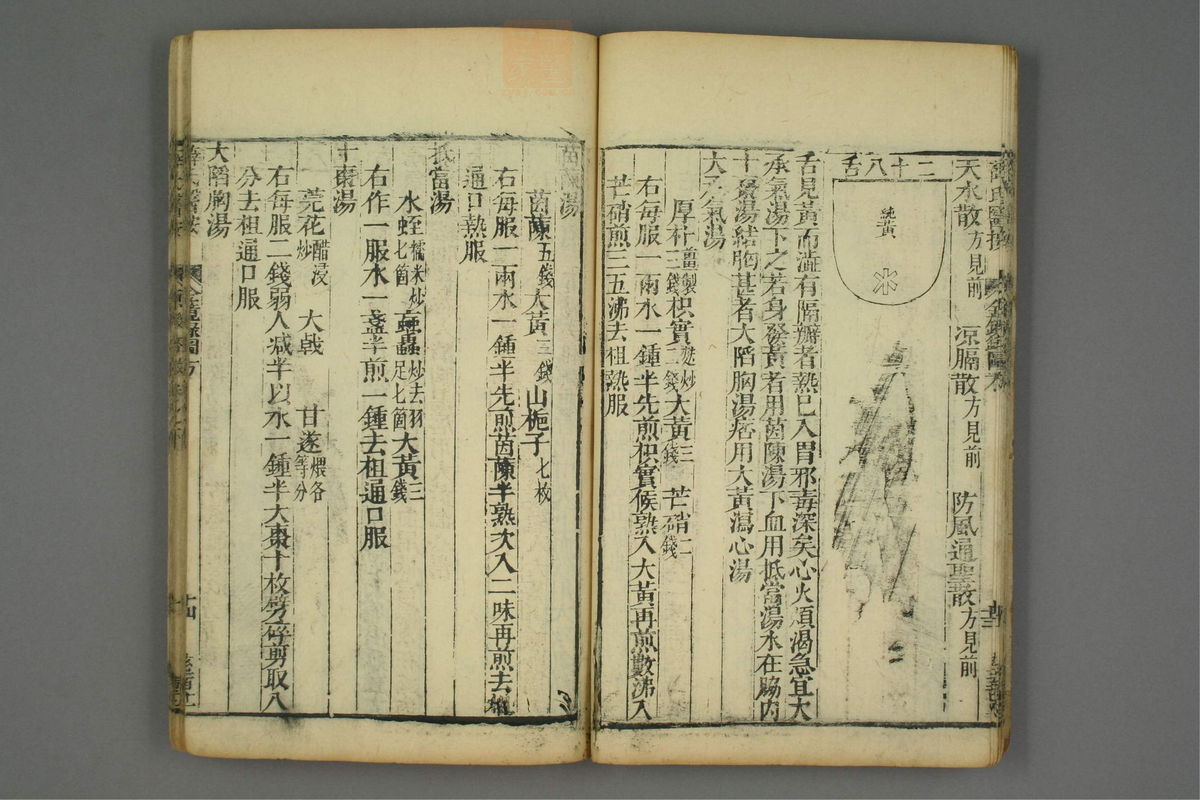 天水散方見前 凉膈散方見前 防風通聖散方見前
二十八舌
純黄
舌見黄而澁有隔瓣者熟已入胃邪毒深矣心火煩渴急宜大
承氣湯下之若身發黄者用茵陳湯下血用抵當湯水在脇内
十棗湯結胸甚者大陷胸湯痞用大黄瀉心湯
大承氣湯
厚朴薑製三錢 枳實麩炒二錢 大黄三錢 芒硝二錢
右每服一兩水一鍾半先煎枳實候熟入大黄再煎數沸入
芒硝煎三五沸去柤熟服
湯
茵蔯五錢 大黄三錢 山梔子七枚
右每服一兩水一鍾半先煎茵蔯半熟次入二味再煎去柤
通口熱服
抵當湯
水蛭糯米炒七箇 䖟蟲炒去羽足七箇 大黄三錢
右作一服水一盞半煎一鍾去柤通口服
十棗湯
芫花醋浸炒 大戟 甘遂煨各等分
右每服二錢弱人减半以水一鍾半大棗十枚劈碎剪取八
分去柤通口服
大陷胸湯